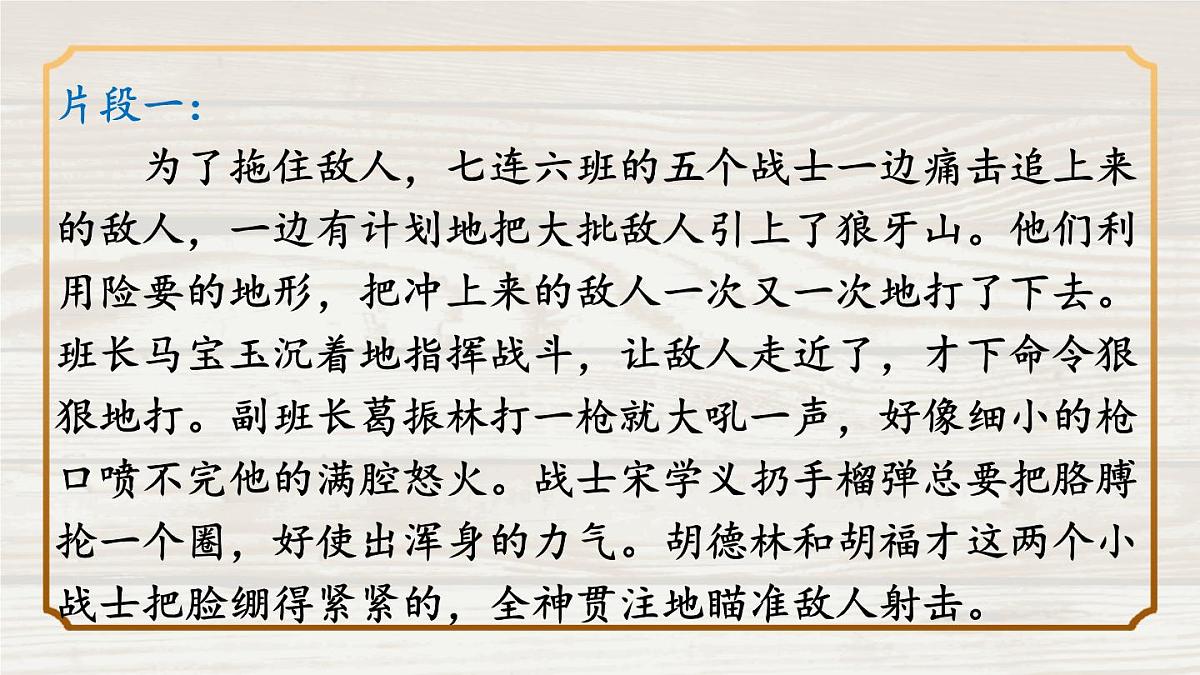 片段一：
为了拖住敌人，七连六班的五个战士一边痛击追上来
的敌人，一边有计划地把大批敌人引上了狼牙山。他们利
用险要的地形，把冲上来的敌人一次又一次地打了下去。
班长马宝玉沉着地指挥战斗，让敌人走近了，才下命令狠
狠地打。副班长葛振林打一枪就大吼一声，好像细小的枪
口喷不完他的满腔怒火。战士宋学义扔手榴弹总要把胳膊
抡一个圈，好使出浑身的力气。胡德林和胡福才这两个小
战士把脸绷得紧紧的，全神贯注地瞄准敌人射击。